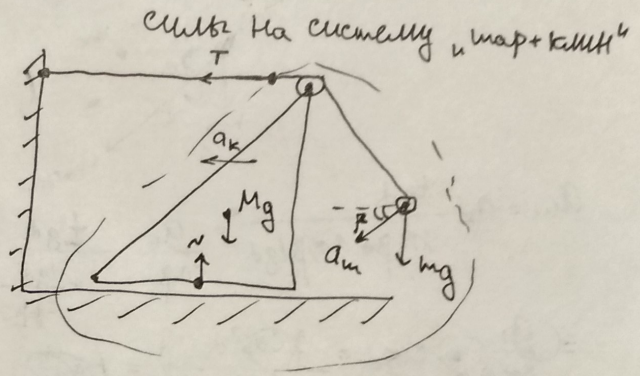 силы на систему „шар+клин"
T
aк
Mg
N
β
aш
mg